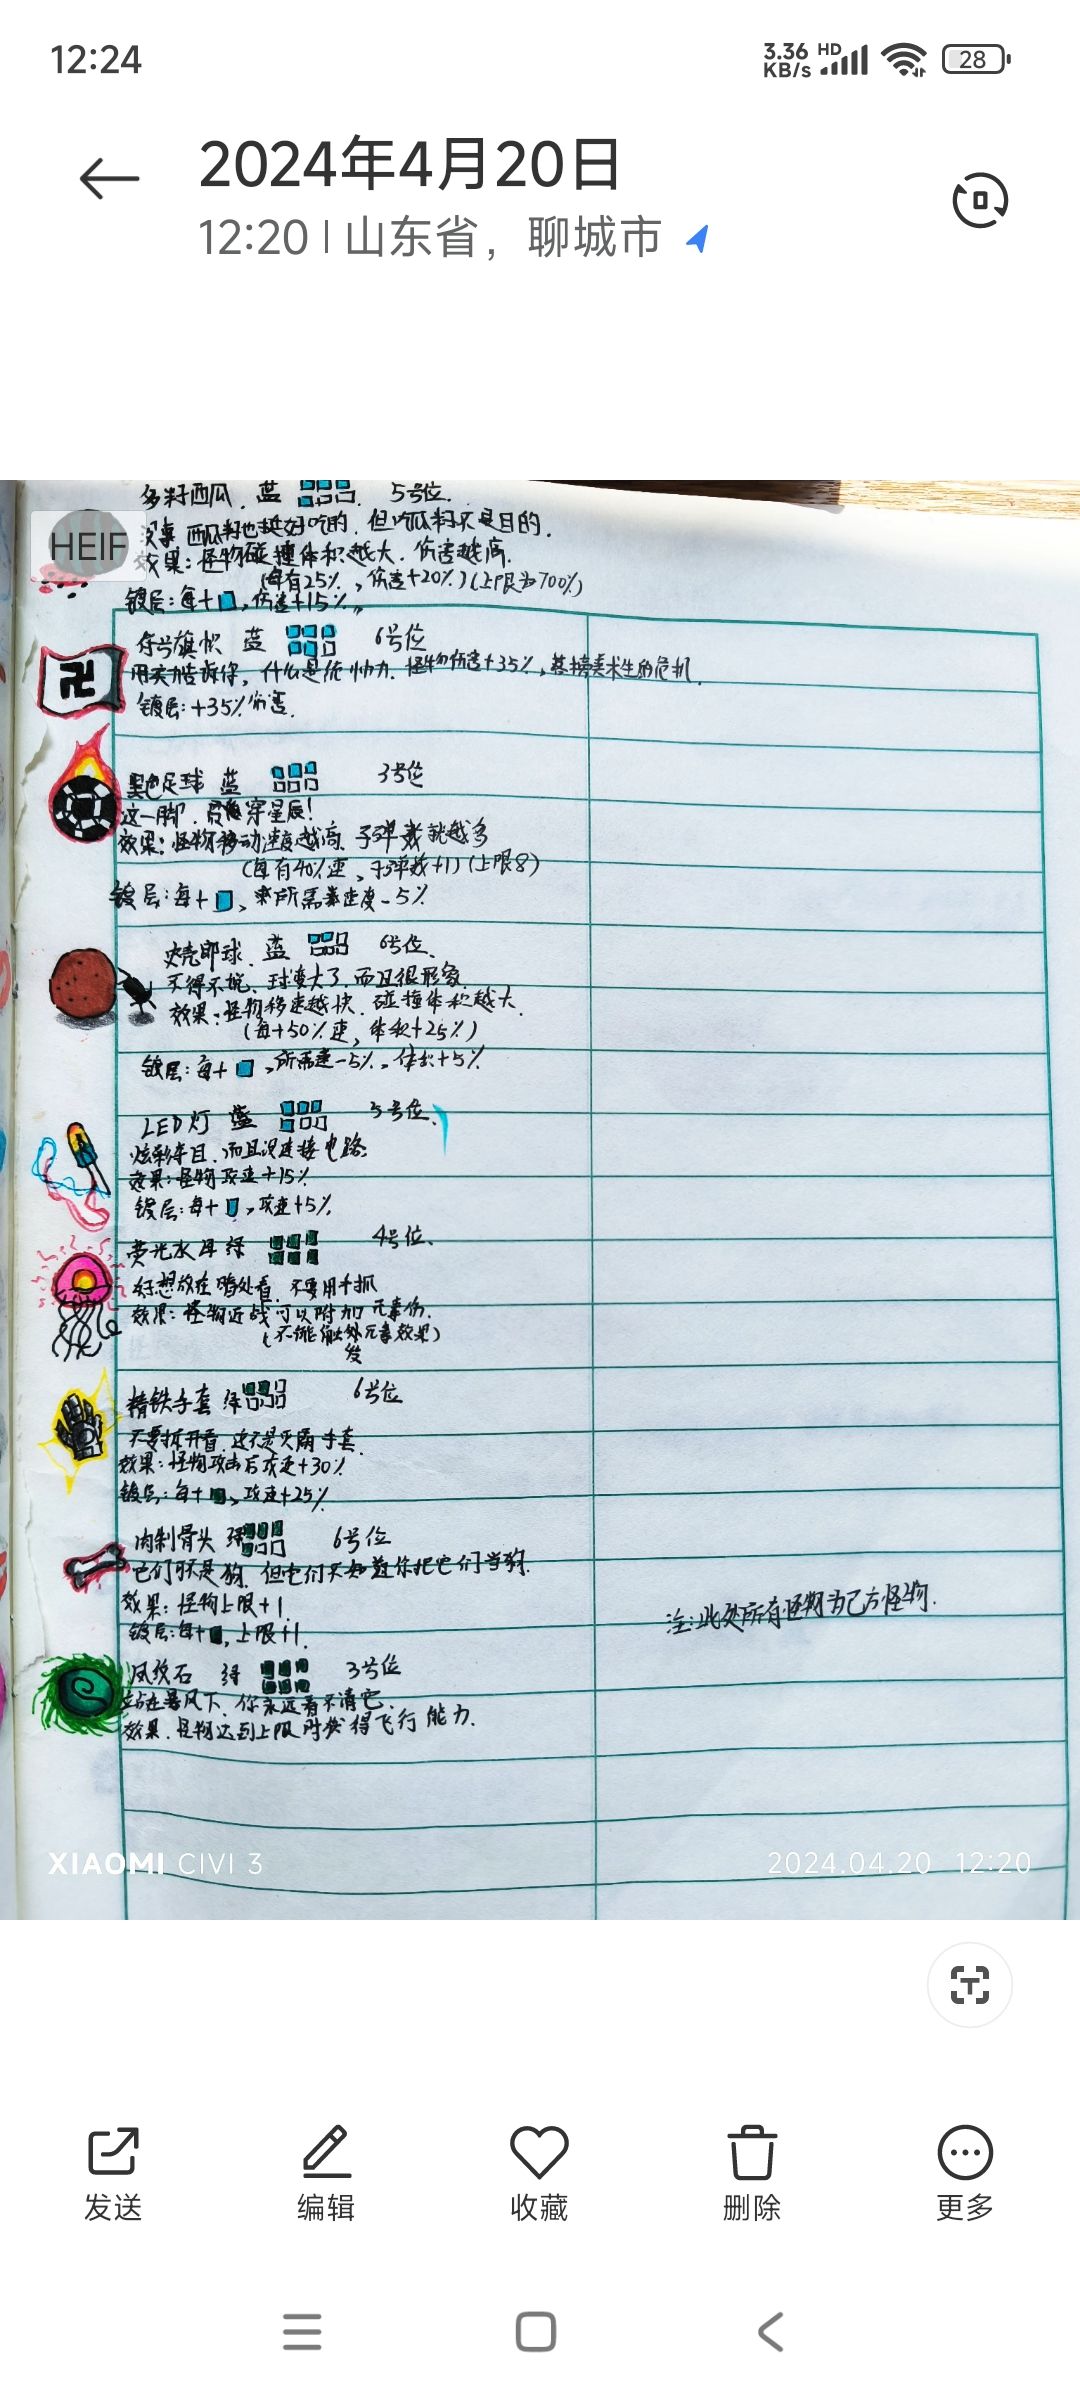 12:24
3.36 KB/s HD 28
2024年4月20日
12:20 | 山东省，聊城市
多籽西瓜 蓝 5号位.
西瓜籽也挺好吃的，但吃瓜籽不是目的.
HEIF
效果：怪物碰撞体积越大，伤害越高.
(每有25%，伤害+20%)(上限为700%)
镀层：每+，伤害+15%
符号旗帜 蓝 6号位
用实力告诉你，什么是统帅力. 怪物伤害+35%，基接美术生的危机.
镀层：+35%伤害.
卍
黑色足球 蓝 3号位
这一脚，穿星辰!
效果：怪物移动速度越高，子弹数就越多
(每有40%速，子弹数+1)(上限8)
镀层：每+，所需速度-5%
史壳郎球 蓝 6号位.
不得不说，球变大了，而且很形象.
效果：怪物移速越快，碰撞体积越大.
(每+50%速，体积+25%)
镀层：每+，所需速-5%，体积+5%
LED灯 蓝 5号位.
炫彩夺目，而且没连接电路.
效果：怪物攻速+15%
镀层：每+，攻速+5%.
荧光水母 绿 4号位.
幻想放在暗处看，不要用手抓
效果：怪物近战可以附加元素伤.
(不能触发外元素效果)
精铁手套 绿 6号位
不要拆开看，这不是灭霸手套.
效果：怪物攻击后攻速+30%
镀层：每+，攻速+25%
肉制骨头 绿 6号位
它们不是狗，但它们不知道你把它们当狗.
效果：怪物上限+1.
镀层：每+，上限+1.
注：此处所有怪物为己方怪物.
风纹石 绿 3号位
站在暴风下，你永远看不清它.
效果：怪物达到上限时获得飞行能力.
XIAOMI CIVI 3
2024.04.20 12:20
发送 编辑 收藏 删除 更多